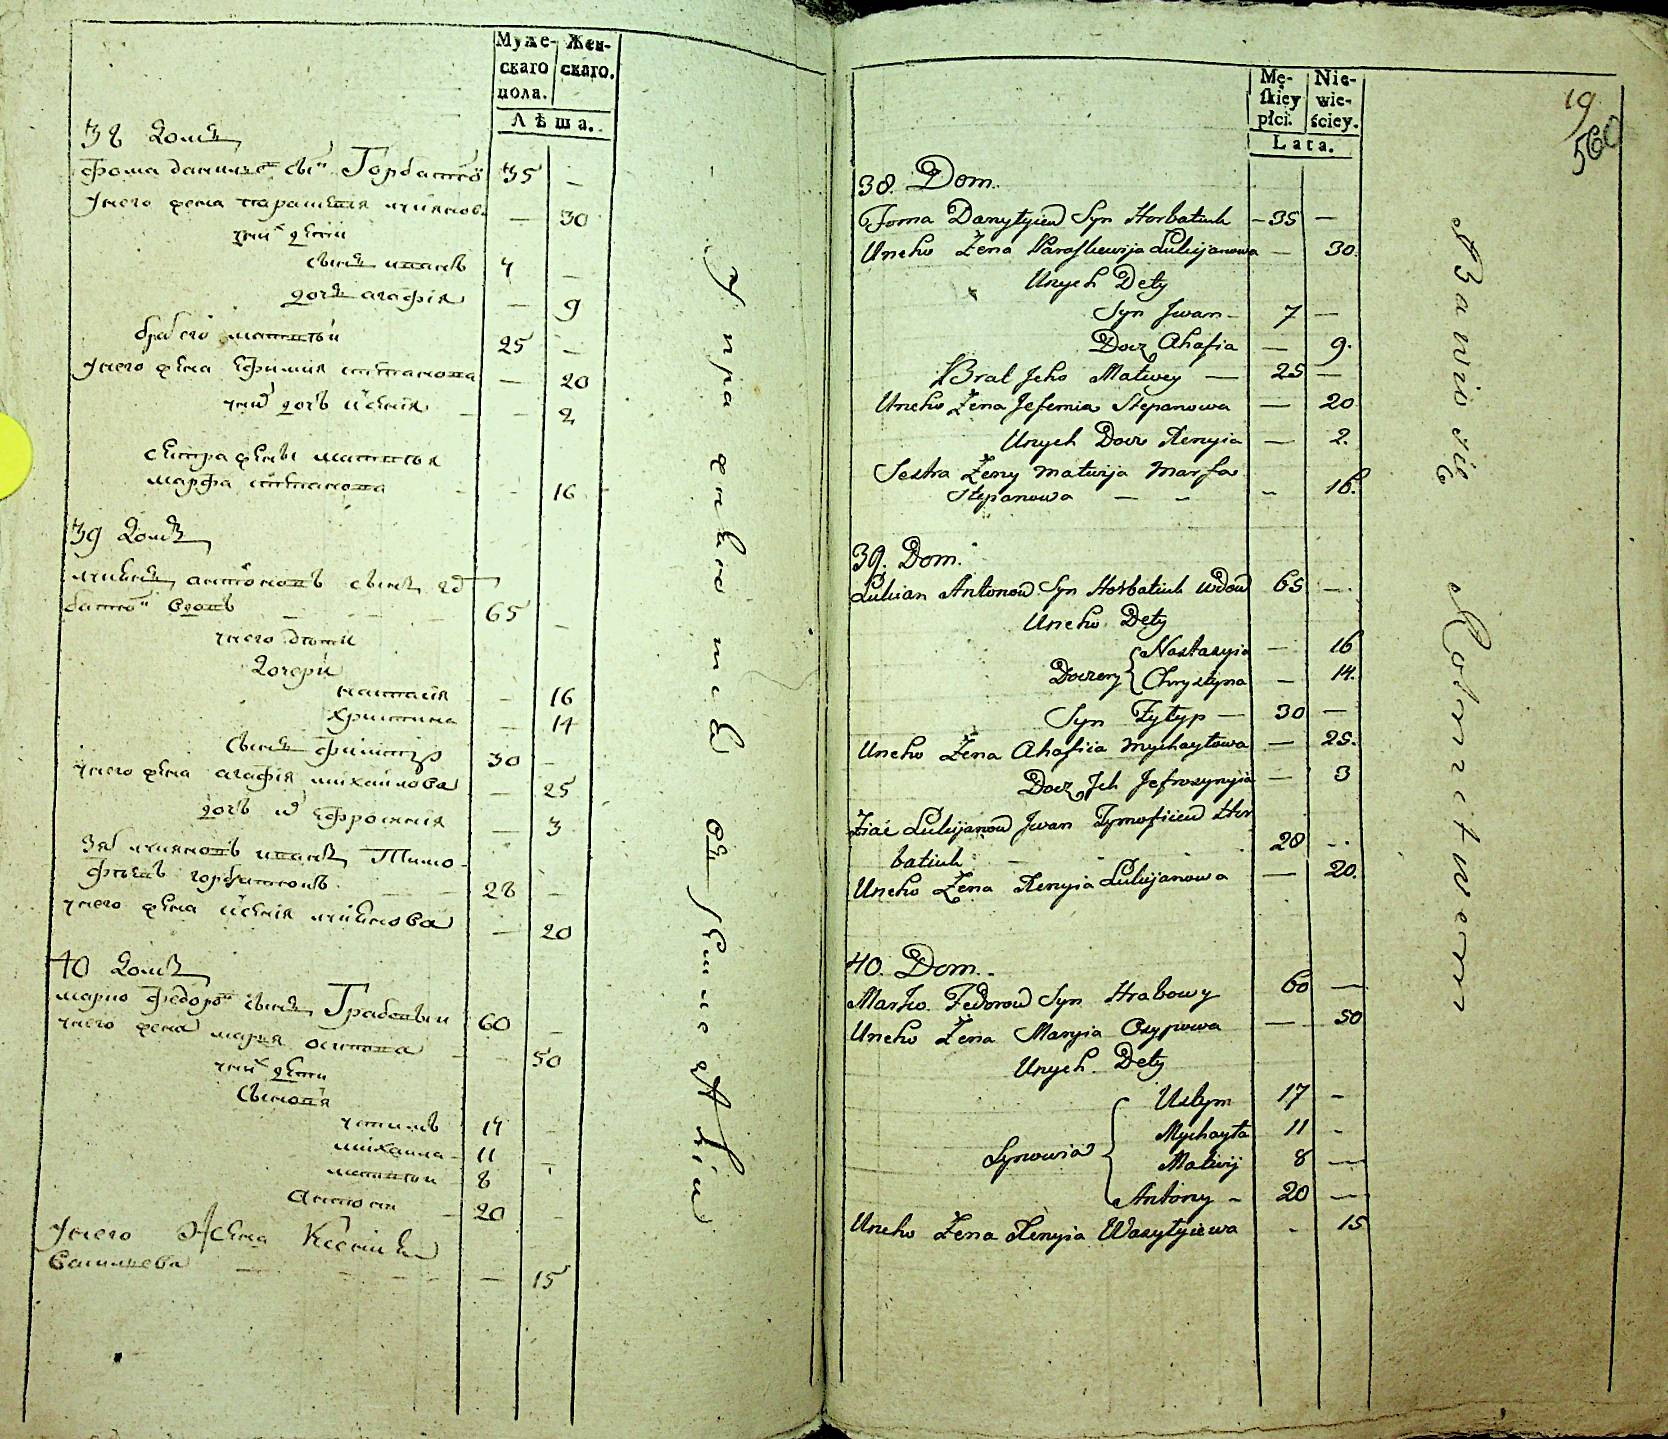 Муже-
скаго
пола.
Жен-
скаго.
Лѣта.
38 Домъ
Фома Данилов Сынъ Горбатюк 35 —
У него жена Параскевия Лукиянов. — 30
У них дети
Сынъ Иванъ 7 —
Дочь Агафія — 9
брат его Матвей 25 —
У него жена Ефимия Степанова — 20
дочь Ксенія — 2
сестра жены Матвея
Марфа Степанова - - 16
39 Домъ
Лукиянъ Антоновъ сынъ Гор
батюк вдовъ 65 —
у него Дети
Дочери
Настасия - 16
Христина - 14
Сынъ Филипъ 30 —
У него жена Агафія Михайлова — 25
дочь их Ефросиния — 3
Зять Лукияновъ Иванъ Тимо-
фѣевъ Горбатюкъ 28 —
У него жена Ксенія Лукиянова — 20
40 Домъ
Марко Федоров Сынъ Грабовый 60 —
У него жена Мария Осипова - - 50
у них дети
Сыновя
Устимъ 17 -
Михайла 11 -
Матвей 8 -
Антони - 20 -
У него Жена Ксения
Васильева — — 15
19
560
Mę-
skiey
płci.
Nie-
wie-
ściey.
Lata.
38. Dom.
Foma Danyłyiew Syn Horbatiuk - 35 —
Uneho Żena Paraskewija Lukijanowa — 30.
Unych Dety
Syn Jwan - 7 —
Docz Ahafia — 9.
Brat Jeho Matwey — 25 —
Uneho Żena Jefemia Stepanowa — 20
Unych Docz Xenyia — 2.
Sestra Żeny Matwija Marfa
Stepanowa — - - 16.
39. Dom.
Lukian Antonow Syn Horbatiuk wdow 65 —
Uneho Dety
Doczery { Nastasyia — 16
Chrystyna — 14.
Syn Fyłyp — 30 —
Uneho Żena Ahafiia Mychayłowa — 25.
Docz Jch Jefrosynyia — 3
Ziać Lukijanow Jwan Tymofiiew Hor
batiuk — 28 - .
Uneho Żena Xenyia Lukijanowa — 20.
40. Dom.
Marko Fedorow Syn Hrabowy 60 —
Uneho Żena Maryia Osypowa — 50
Unych Dety
Synowia { Ustym 17 -
Mychayła 11 -
Matwij 8 —
Antony - 20 —
Uneho Żena Xenyia Wasylyiewa - 15
Bawio się Robnictwem